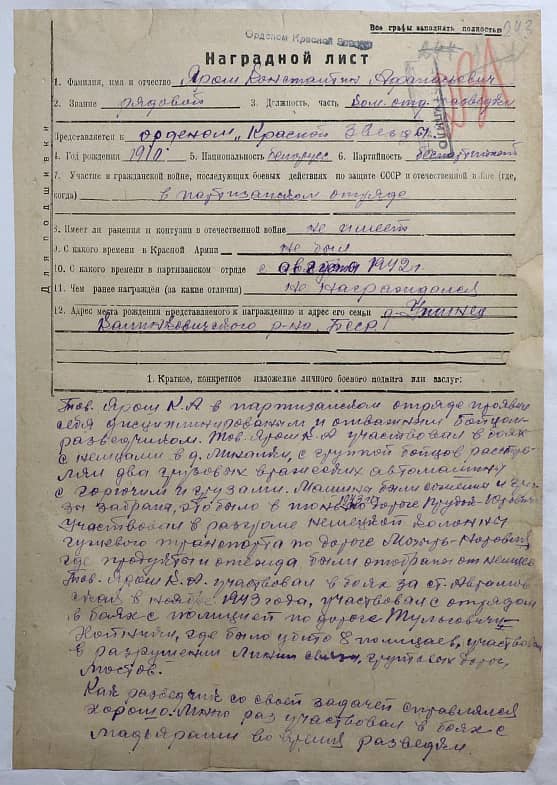 Все графы заполнять полностью
Орденом Красной Звезды
Наградной лист
1. Фамилия, имя и отчество Ярош Константин
2. Звание рядовой 3. Должность, часть Ком. отд. разведки
Представляется к орденом „Красной Звезды"
4. Год рождения 1910 5. Национальность белорусс 6. Партийность беспартийный
7. Участие в гражданской войне, последующих боевых действиях по защите СССР и отечественной войне (где,
когда) в партизанском отряде
8. Имеет ли ранения и контузии в отечественной войне не имеет
9. С какого времени в Красной Армии не был
10. С какого времени в партизанском отряде с августа 1942 г.
11. Чем ранее награждён (за какие отличия) не награждался
12. Адрес места рождения представляемого к награждению и адрес его семьи д.
Калинковичского р-на БССР
Для подшивки
1. Краткое, конкретное изложение личного боевого подвига или заслуг:
Тов. Ярош К.А в партизанском отряде проявил
себя дисциплинированым и отважным бойцом-
разведчиком. Тов. Ярош К.А участвовал в боях
с немцами в д. с группой бойцов расстре-
лял два грузовых вражеских автомашин
с горючим и грузами. Машины были сожжены и гру-
зы забраны, это было в июне 1943 г. по дороге
Участвовал в разгроме немецкой колонны
гужевого транспорта по дороге Мозырь-
где продукты и одежда были отобраны от немцев
Тов. Ярош К.А. участвовал в боях за ст. Аврамов-
ская в ноябре 1943 года, участвовал с отрядом
в боях с полицией по дороге Тульговичи-
Хойники, где было убито 8 полицаев, участвовал
в разрушении линии связи, грунтовых дорог,
мостов.
Как разведчик со своей задачей справлялся
хорошо. Много раз участвовал в боях с
мадьярами во время разведки.